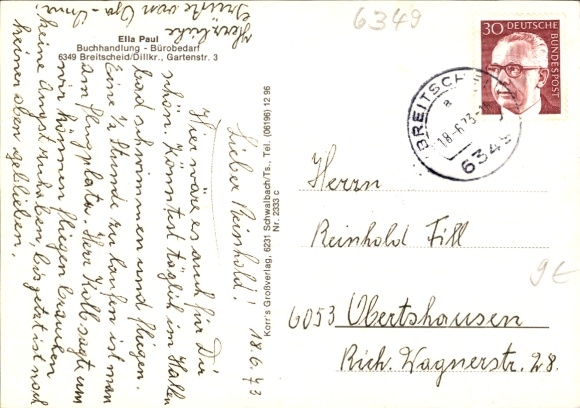 Ella Paul
Buchhandlung - Bürobedarf
6349 Breitscheid/Dillkr., Gartenstr. 3
18.6.73
Lieber Reinhold!
Hier wäre es auch für Dir
schön. Könntest täglich im Hallen
bad schwimmen und fliegen.
Eine ½ Stunde zu laufen ist man
am Flugplatz. Herr Kolb sagt um
wir können fliegen brauchen
keine Angst zu haben, bis jetzt ist noch
keiner oben geblieben.
Herzliche
Grüsse von Opa - Oma
Korr's Großverlag, 6231 Schwalbach/Ts., Tel. (06196) 12 96
Nr. 2333 c
6349
30 DEUTSCHE
BUNDESPOST
BREITSCHEID
a
18-6.73-
6349
Herrn
Reinhold Fill
6053 Obertshausen
Rich. Wagnerstr. 28.
9€